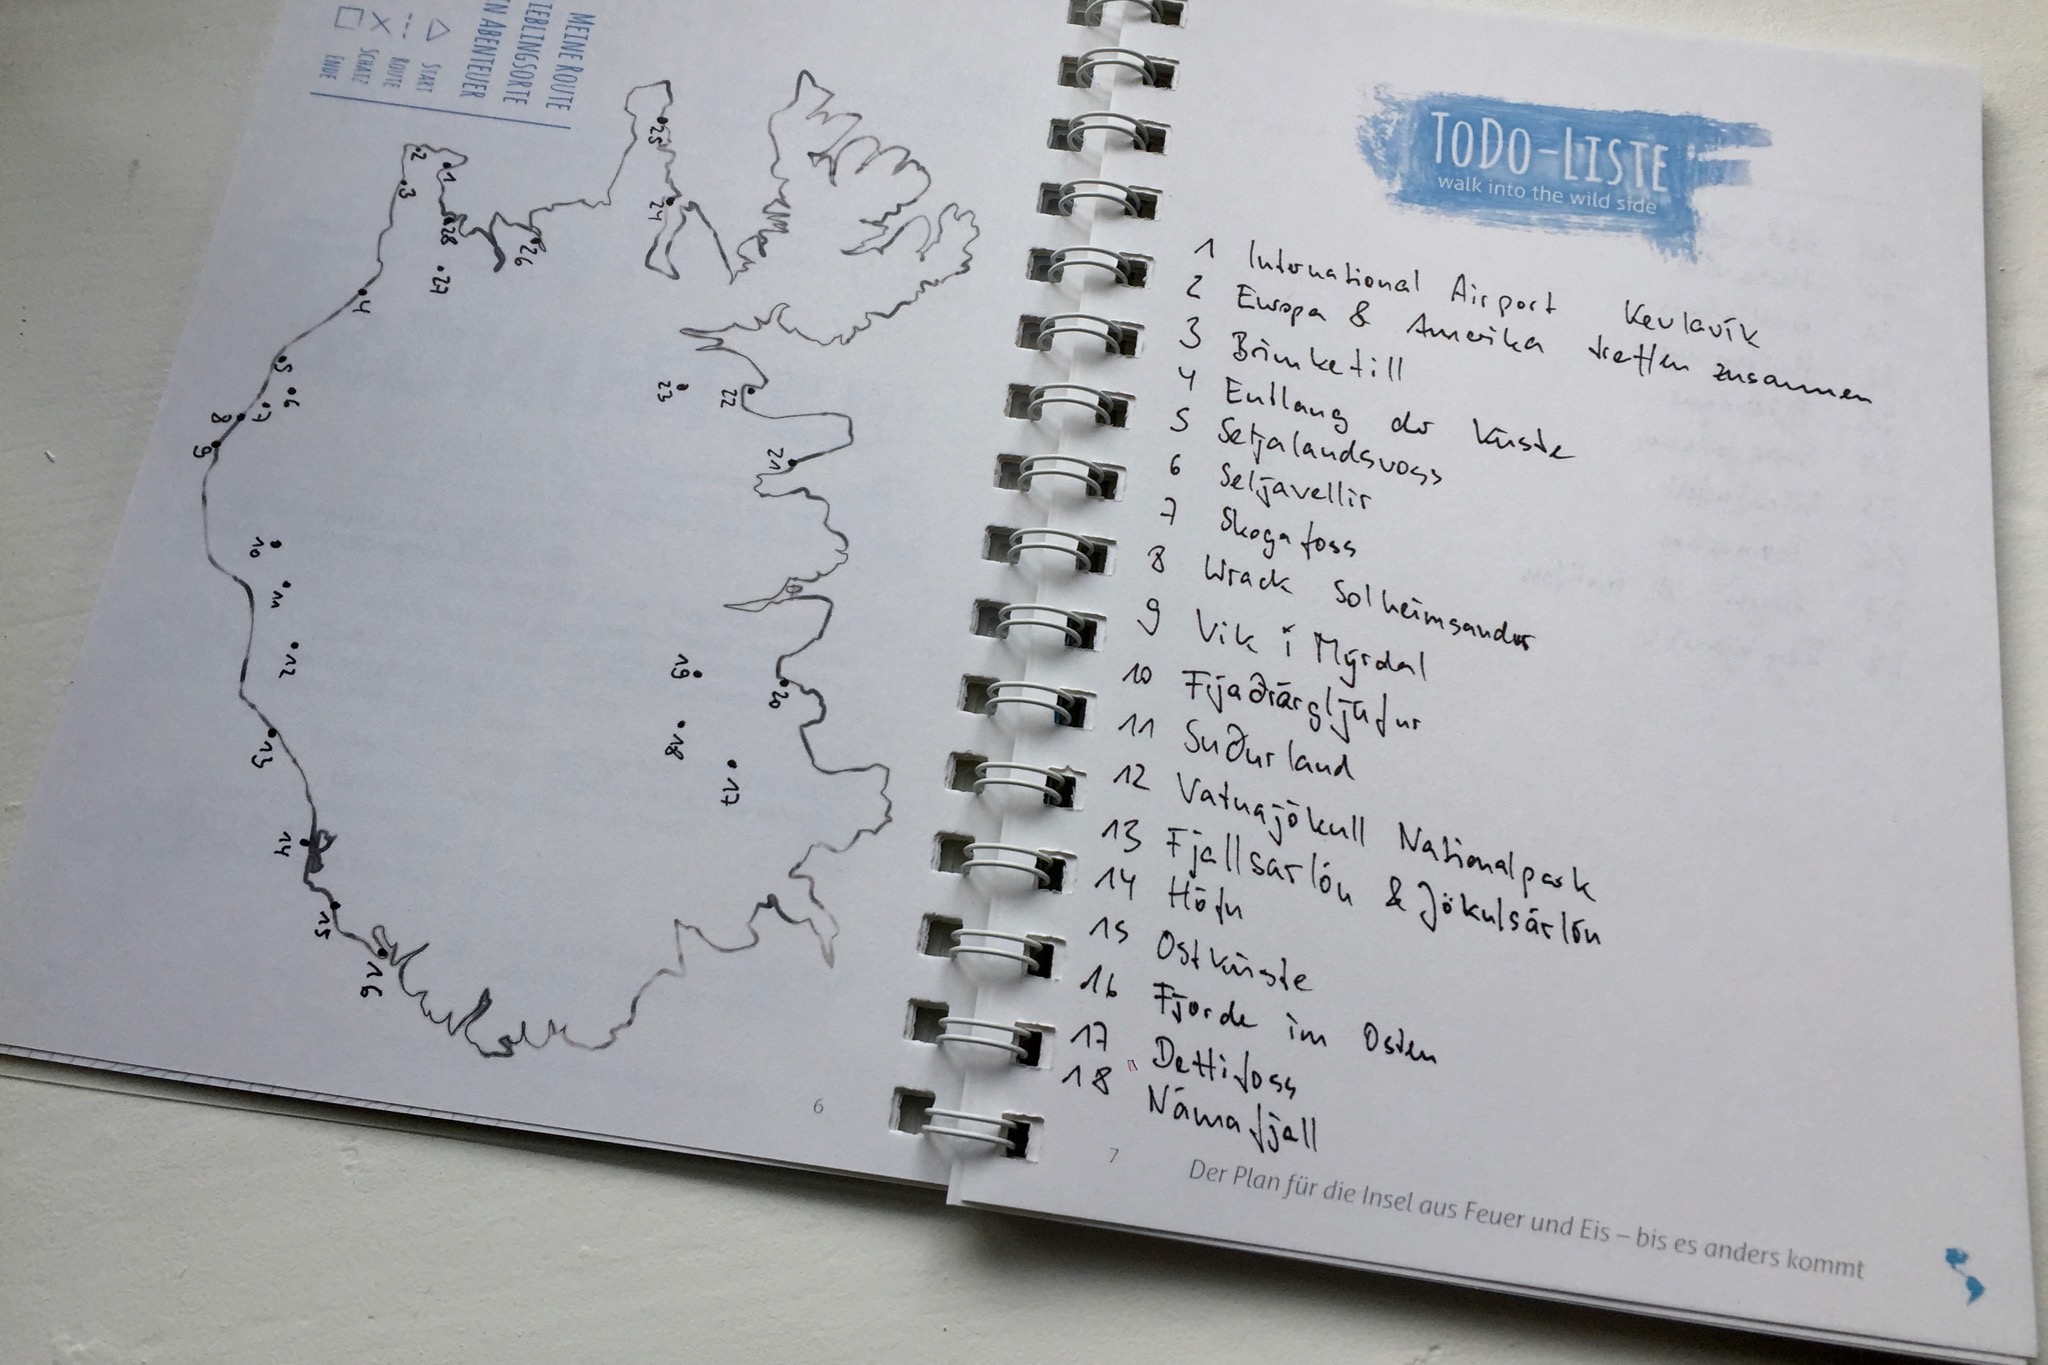 MEINE ROUTE
IEBLINGSORTE
N ABENTEUER
START
ROUTE
SCHATZ
ENDE
25
24
2
1
3
28
26
27
4
5
6
7
8
9
23
22
21
10
11
12
19
20
18
17
13
14
15
16
6
TODO-LISTE
walk into the wild side
1 International Airport Kevlavík
2 Europa & Amerika treffen zusammen
3 Brimketill
4 Entlang der Küste
5 Setjalandsvoss
6 Seljavellir
7 Skogafoss
8 Wrack Solheimsandur
9 Vik í Mýrdal
10 Fijaðrárgljúfur
11 Suðurland
12 Vatnajökull Nationalpark
13 Fjallsárlón & Jökulsárlón
14 Höfn
15 Ostküste
16 Fjorde im Osten
17 Dettifoss
18 Námafjall
7
Der Plan für die Insel aus Feuer und Eis – bis es anders kommt